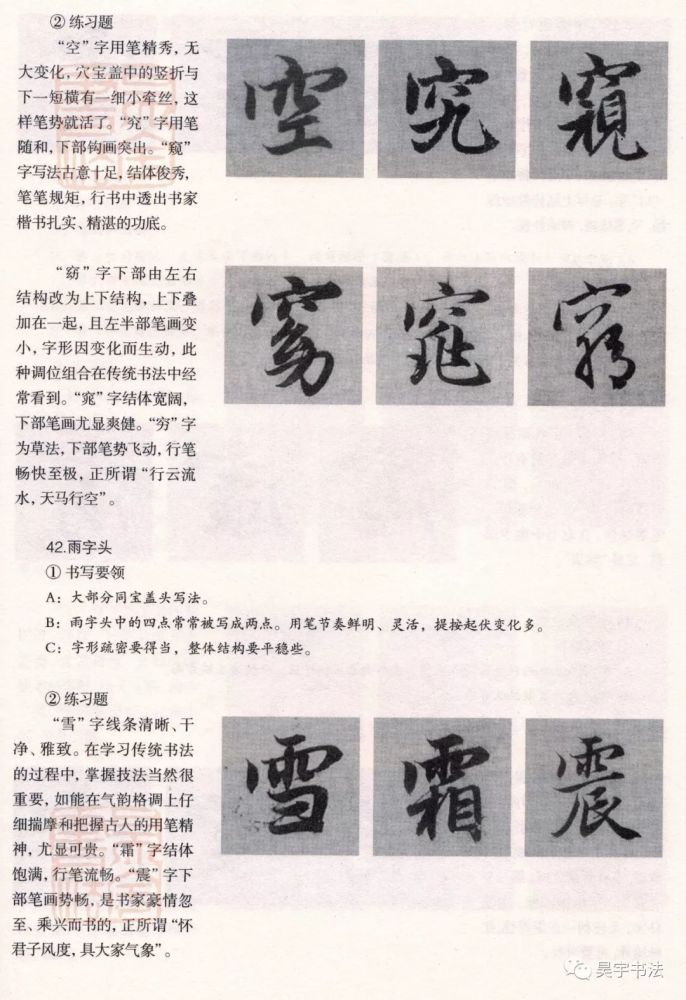 ② 练习题
“空”字用笔精秀，无
大变化，穴宝盖中的竖折与
下一短横有一细小牵丝，这
样笔势就活了。“究”字用笔
随和，下部钩画突出。“窥”
字写法古意十足，结体俊秀，
笔笔规矩，行书中透出书家
楷书扎实、精湛的功底。
空 究 窥
“窈”字下部由左右
结构改为上下结构，上下叠
加在一起，且左半部笔画变
小，字形因变化而生动，此
种调位组合在传统书法中经
常看到。“窕”字结体宽阔，
下部笔画尤显爽健。“穷”字
为草法，下部笔势飞动，行笔
畅快至极，正所谓“行云流
水，天马行空”。
窈 窕 穷
42.雨字头
① 书写要领
A：大部分同宝盖头写法。
B：雨字头中的四点常常被写成两点。用笔节奏鲜明、灵活，提按起伏变化多。
C：字形疏密要得当，整体结构要平稳些。
② 练习题
“雪”字线条清晰、干
净、雅致。在学习传统书法
的过程中，掌握技法当然很
重要，如能在气韵格调上仔
细揣摩和把握古人的用笔精
神，尤显可贵。“霜”字结体
饱满，行笔流畅。“震”字下
部笔画势畅，是书家豪情忽
至、乘兴而书的，正所谓“怀
君子风度，具大家气象”。
雪 霜 震
昊宇书法